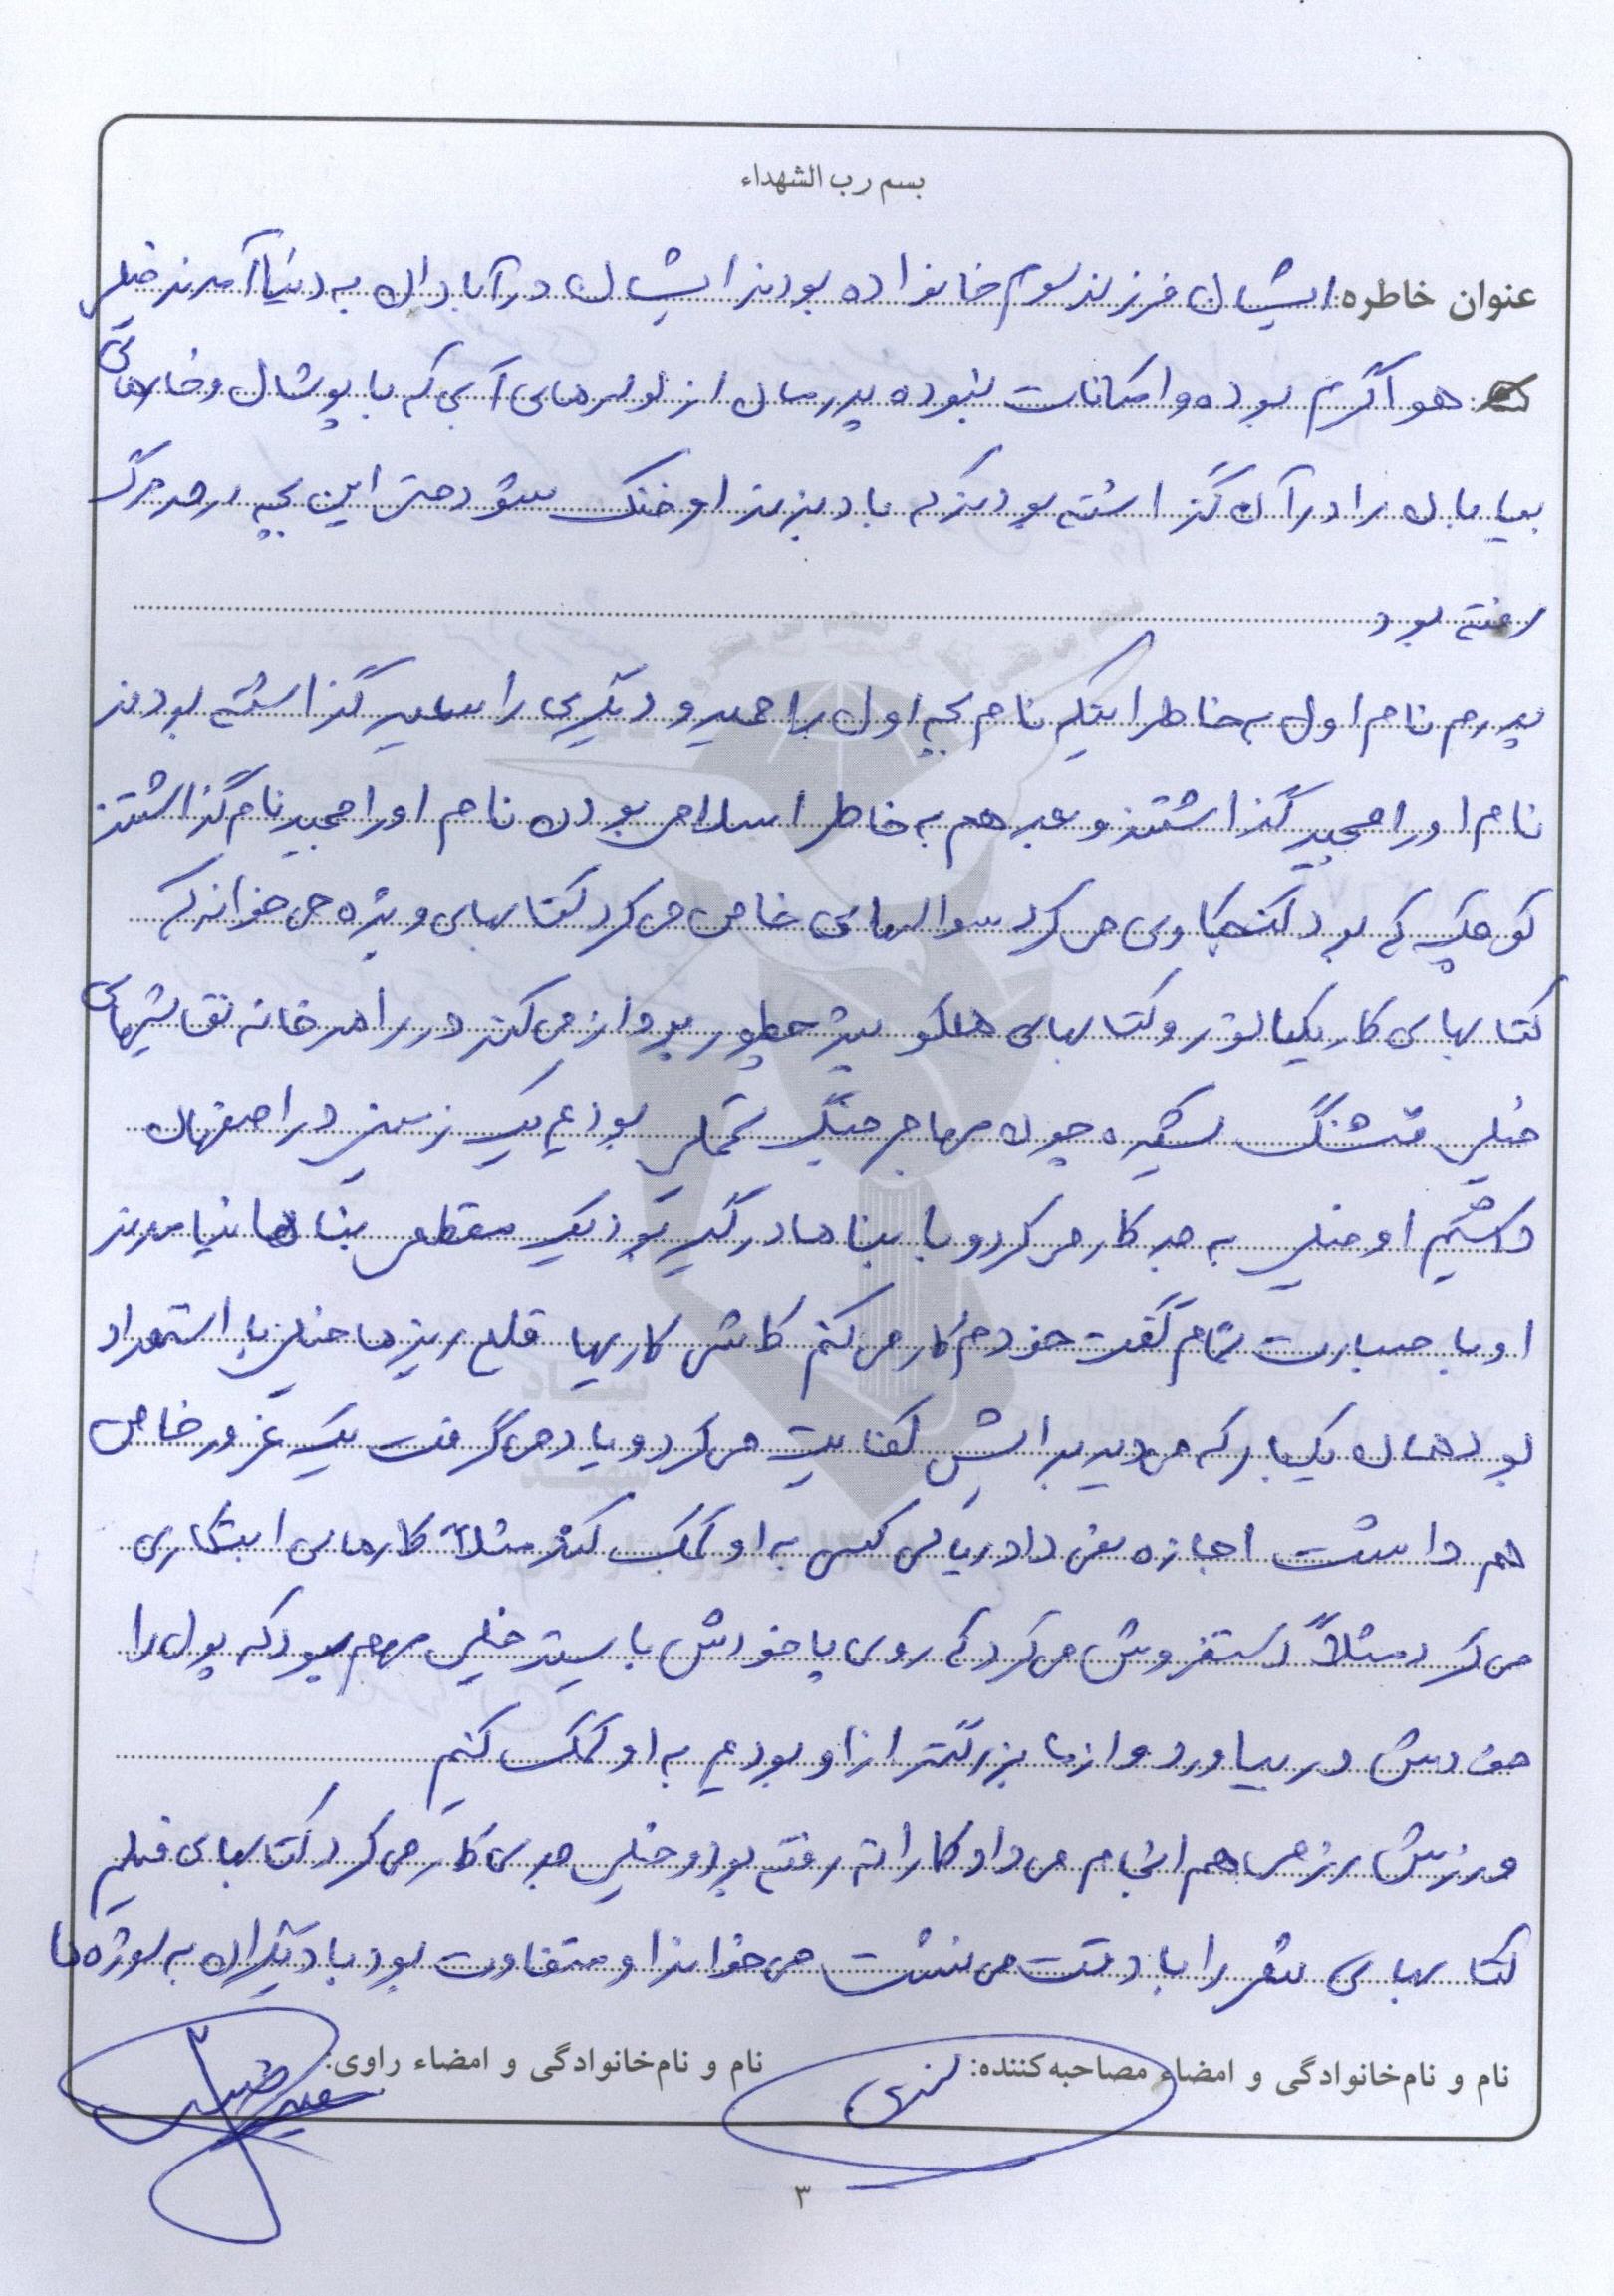 بسم رب الشهداء
عنوان خاطره: ایشان فرزند سوم خانواده بودند ایشان در آبادان به دنیا آمدند خیلی
هوا گرم بوده و امکانات نبوده پدرمان از کولرهای آبی که با پوشال و خارهائی
بیابان را در آن گذاشته بودند که باد بزند او خنک شود حتی این بچه در حد مرگ
رفته بود
پدرم نام اول به خاطر اینکه نام بچه اول را حمید و دیگری را سعید گذاشته بودند
نام او را مجید گذاشتند و بعد هم به خاطر اسلامی بودن نام او را مجید نام گذاشتند
کوچک که بود کنجکاوی می کرد سوالهای خاص می کرد کتابهای ویژه می خواند که
کتابهای کاریکیاتور و کتابهای هلکوپتر چطور پرواز می کند در راهرو خانه نقاشیهای
خیلی قشنگ کشیده چون مهاجر جنگ تحملی بودیم یک زمین در اصفهان
داشتیم او خیلی به جد کار می کرد و با بناها درگیر بود یک مقطعی بناها نیامدند
او با جسارت تمام گفت خودم کار می کنم کاش کاریها قلع ریزها خیلی با استعداد
بود همان یکبار که می دید برایش کفایت می کرد و یاد می گرفت یک غرور خاص
هم داشت اجازه نمی داد ریالی کسی به او کمک کند مثلاً کارهای ابتکاری
می کرد مثلاً دستفروشی می کرد که روی پا خودش بایستد خیلی مهم بود که پول را
خودش در بیاورد و از ما بزرگتر از او بودیم به او کمک کنیم
ورزش رزمی هم انجام می داد کاراته رفته بود و خیلی جدی کار می کرد کتابهای فیلم
کتابهای شعر را با دقت می نشست می خواند او متفاوت بود با دیگران به سوژه ها
نام و نام‌خانوادگی و امضاء مصاحبه‌کننده:
نام و نام‌خانوادگی و امضاء راوی:
۳